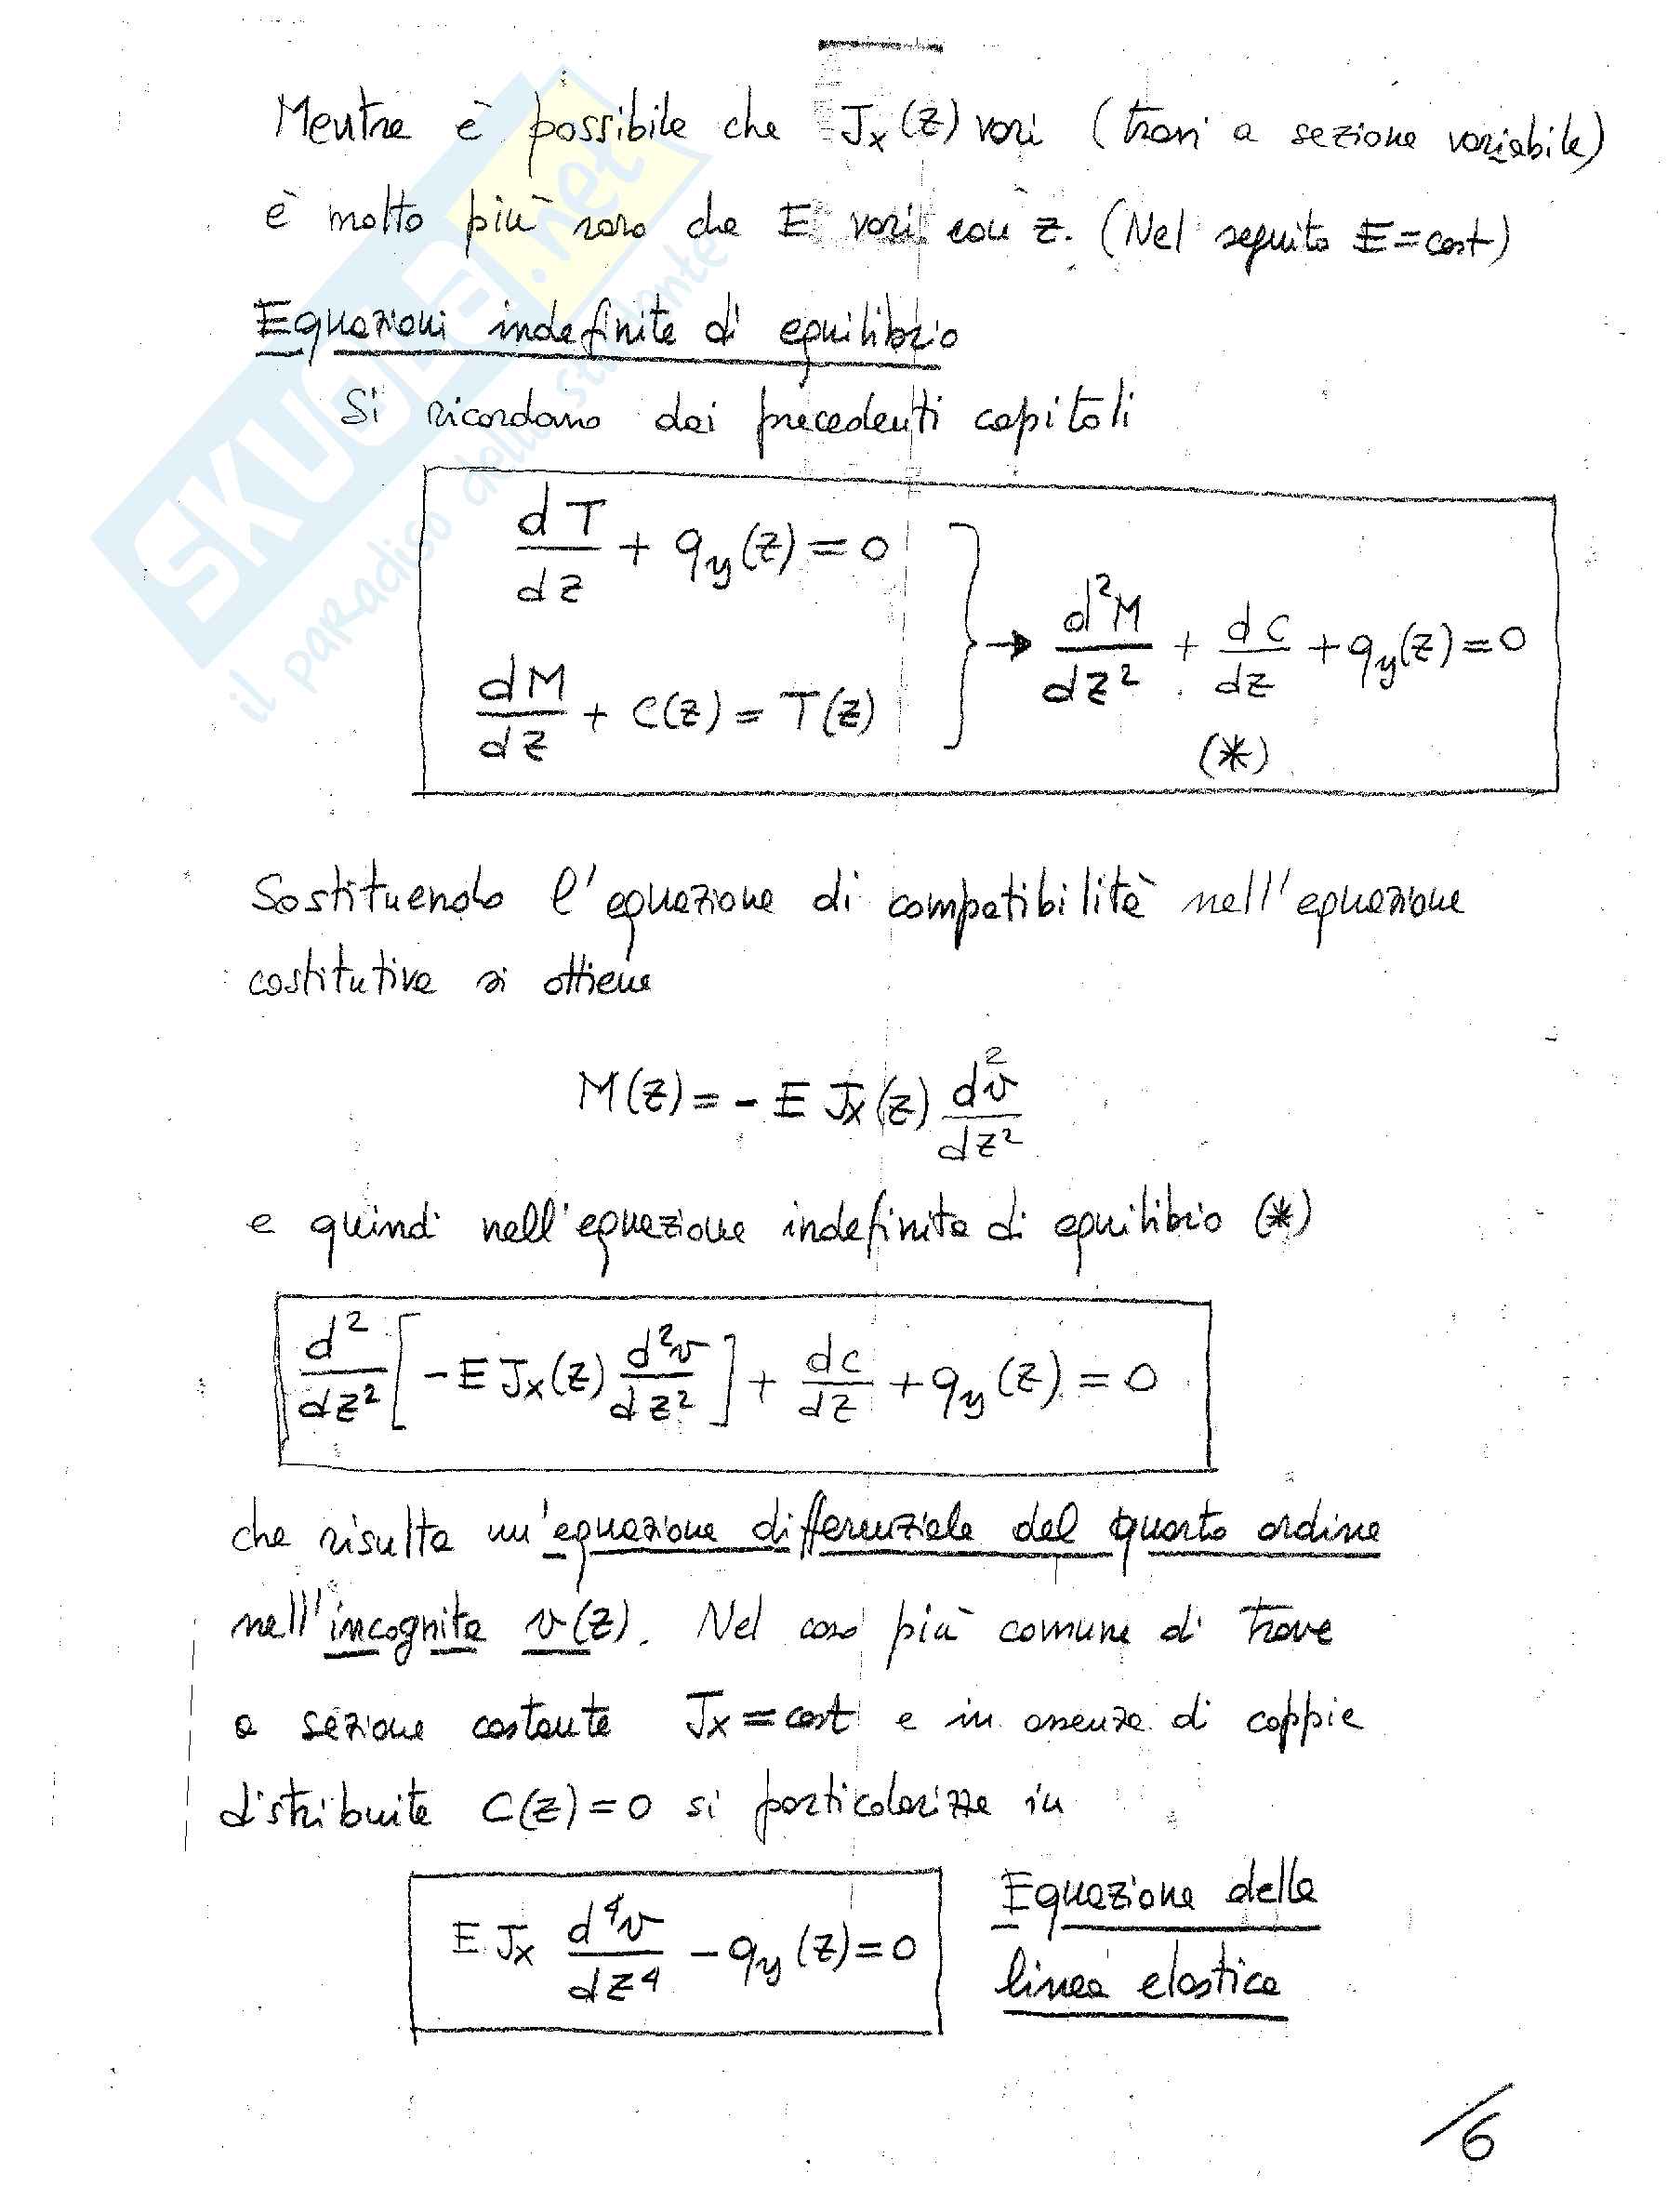 Mentre è possibile che Jx(z) vari (travi a sezione variabile)
è molto più raro che E vari con z. (Nel seguito E=cost)
Equazioni indefinite di equilibrio
Si ricordano dai precedenti capitoli
dT/dz + qy(z) = 0
dM/dz + C(z) = T(z)
} → d²M/dz² + dC/dz + qy(z) = 0
(*)
Sostituendo l'equazione di compatibilità nell'equazione
costitutiva si ottiene
M(z) = - E Jx(z) d²v/dz²
e quindi nell'equazione indefinita di equilibrio (*)
d²/dz² [ - E Jx(z) d²v/dz² ] + dC/dz + qy(z) = 0
che risulta un'equazione differenziale del quarto ordine
nell'incognita v(z). Nel caso più comune di trave
a sezione costante Jx = cost e in assenza di coppie
distribuite C(z) = 0 si particolarizza in
E Jx d⁴v/dz⁴ - qy(z) = 0
Equazione della
linea elastica
/6
SKUOLA.net
il paradiso dello studente